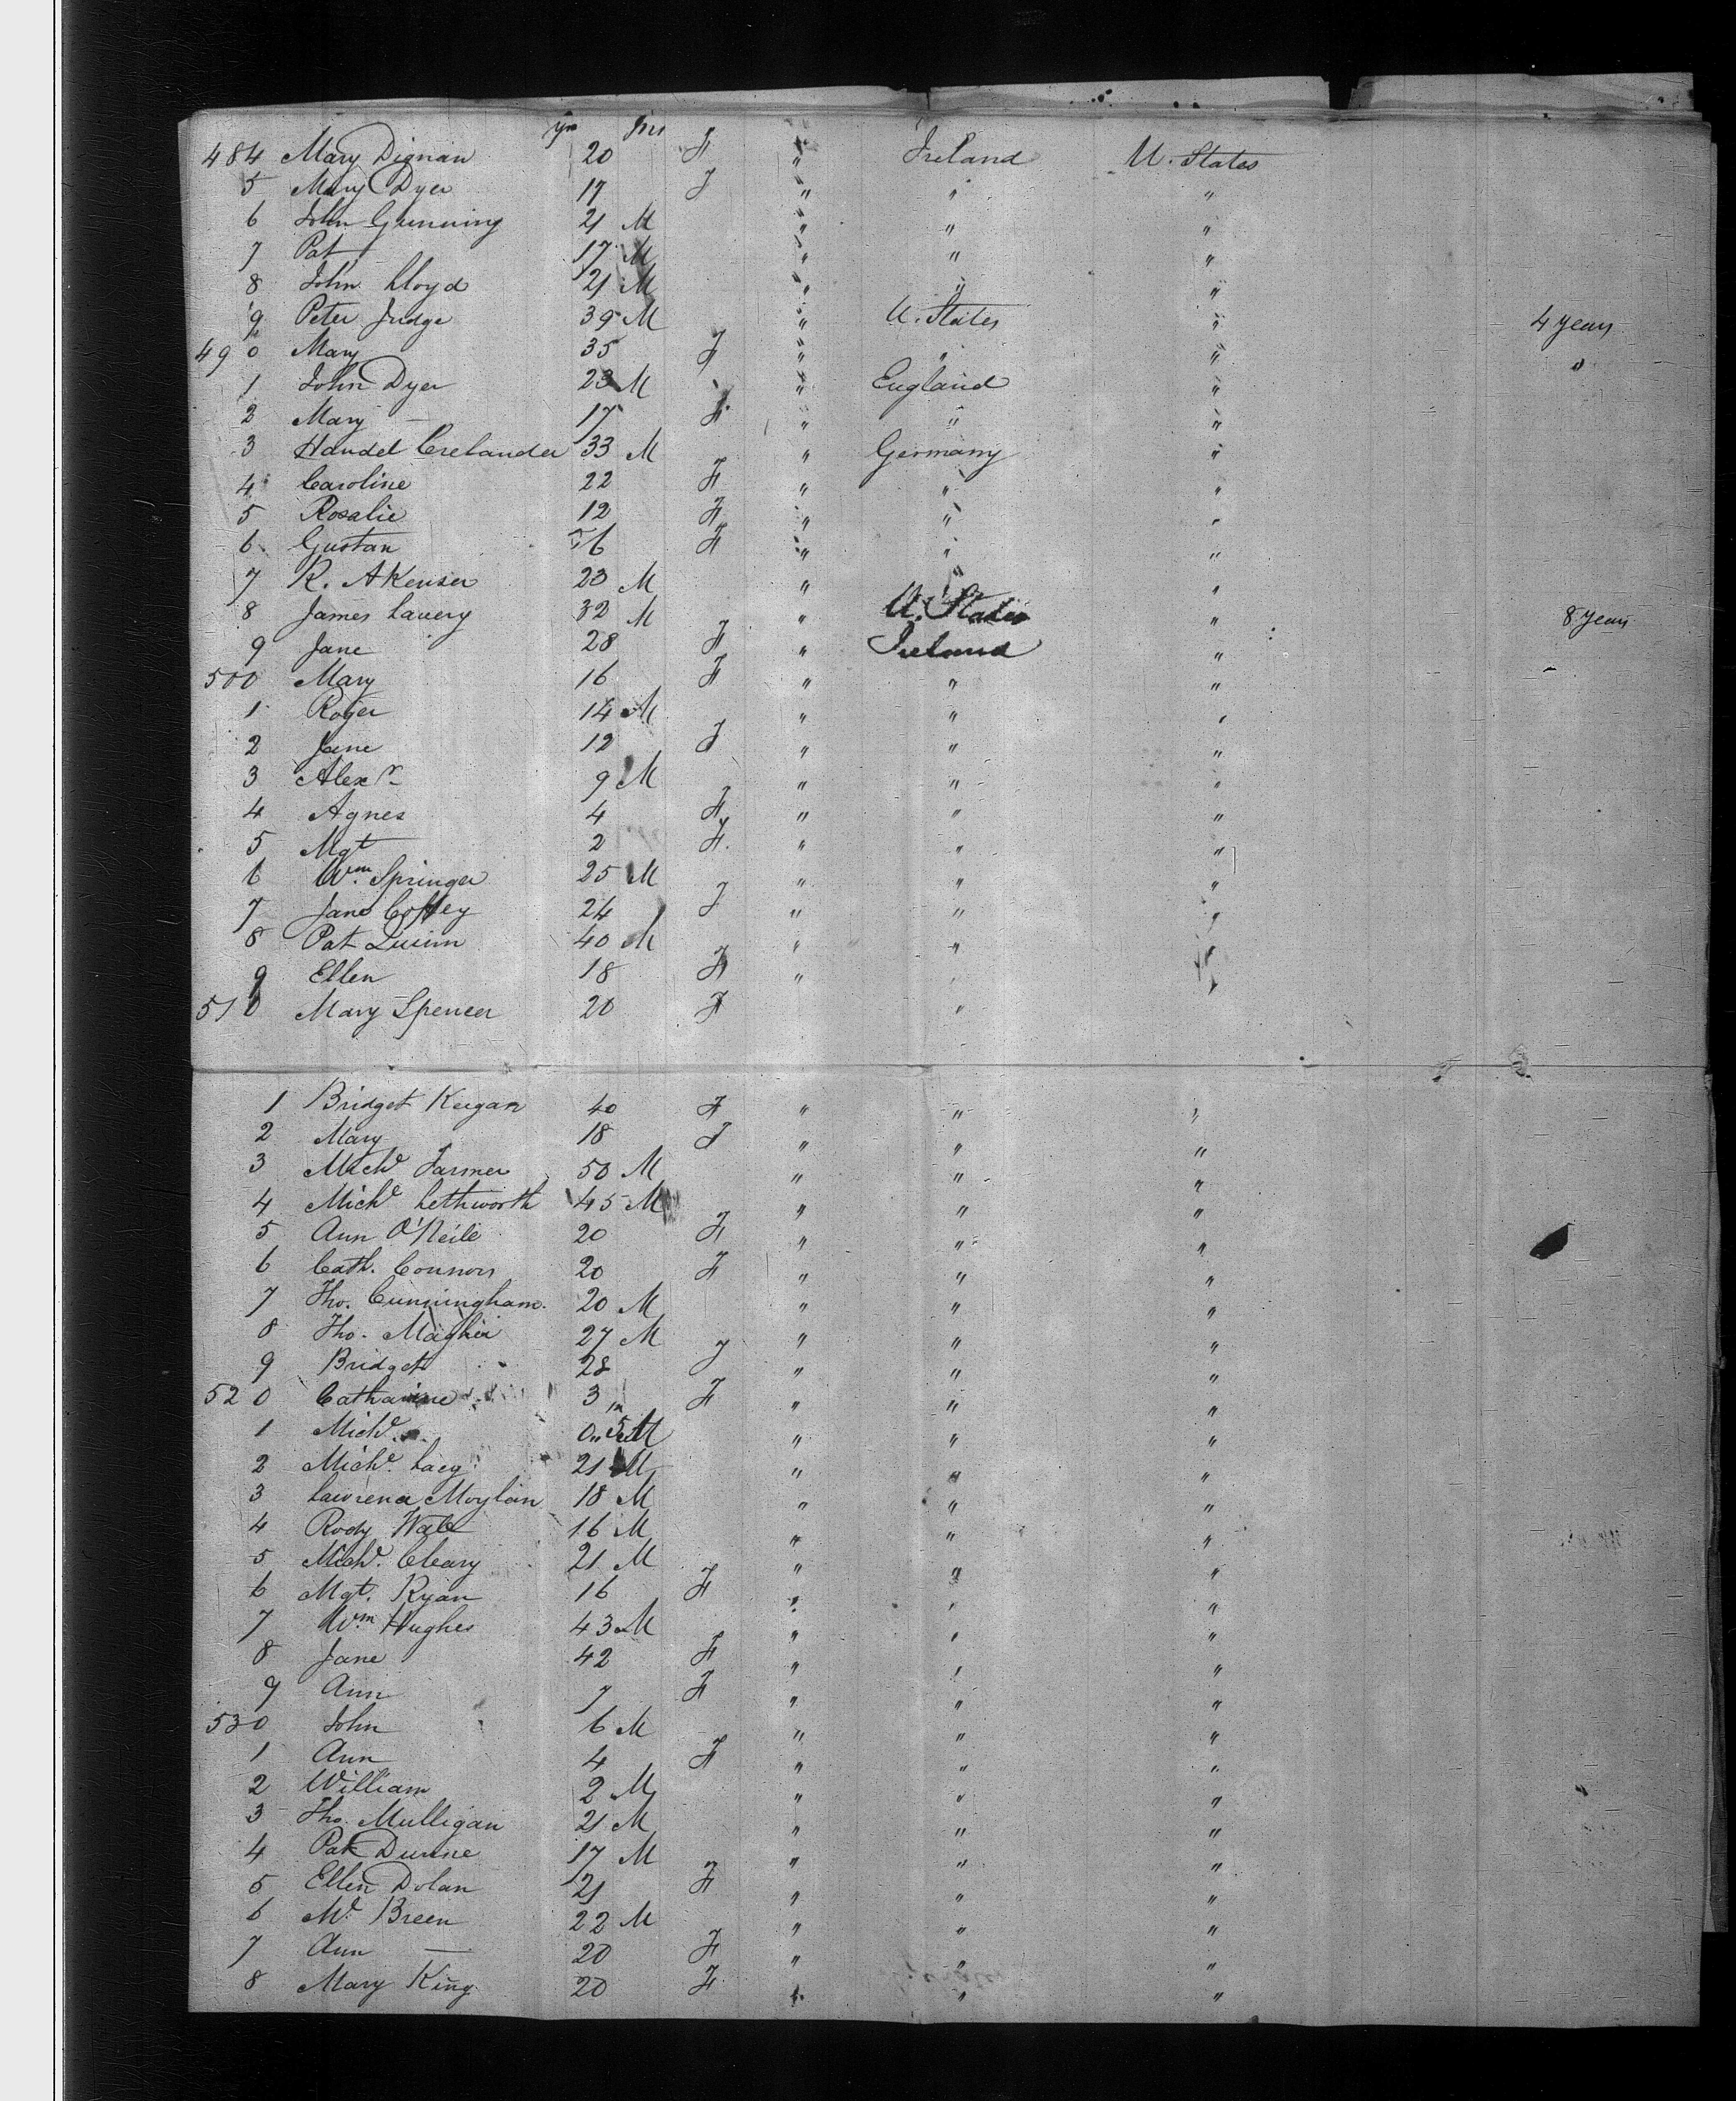 yrs ms
484 Mary Dignan 20 F " Ireland U. States
5 Mary Dyer 17 F " " "
6 John Gunning 21 M " " "
7 Pat 17 M " " "
8 John Lloyd 21 M " " "
9 Peter Judge 39 M " U. States " 4 years
490 Mary 35 F " " " "
1 John Dyer 23 M " England "
2 Mary — 17 F " " "
3 Handel Crelander 33 M " Germany "
4 Caroline 22 F " " "
5 Rosalie 12 F " " "
6 Gustan 6 F " " "
7 R. AKenser 23 M " " "
8 James Lavery 32 M " U. States " 8 years
9 Jane 28 F " Ireland "
500 Mary 16 F " " "
1 Roger 14 M " " "
2 Jane 12 F " " "
3 Alexr 9 M " " "
4 Agnes 4 F " " "
5 Mgt 2 F " " "
6 Wm Springer 25 M " " "
7 Jane Coffey 24 F " " "
8 Pat Quinn 40 M " " "
9 Ellen 18 F " " "
510 Mary Spencer 20 F "
1 Bridget Keegan 40 F " " "
2 Mary 18 F " " "
3 Michl Farmer 50 M " " "
4 Michl Lethworth 45 M " " "
5 Ann O'Neile 20 F " " "
6 Cath. Connors 20 F " " "
7 Tho. Cunningham 20 M " " "
8 Tho. Maghir 27 M " " "
9 Bridget 28 F " " "
520 Catharine 3 F " " "
1 Michl 0 " 5 m M " " "
2 Michl. Lacy 21 M " " "
3 Lawrence Moylan 18 M " " "
4 Rody Wall 16 M " " "
5 Michl. Cleary 21 M " " "
6 Mgt. Ryan 16 F " " "
7 Wm Hughes 43 M " " "
8 Jane 42 F " " "
9 Ann 7 F " " "
530 John 6 M " " "
1 Ann 4 F " " "
2 William 2 M " " "
3 Tho. Mulligan 21 M " " "
4 Pat Dunne 17 M " " "
5 Ellen Dolan 21 F " " "
6 Ml Breen 22 M " " "
7 Ann — 20 F " " "
8 Mary King 20 F " " "